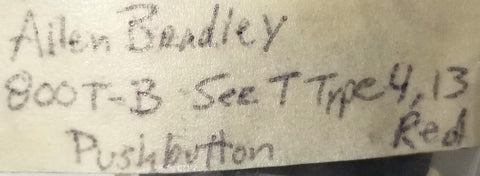 Allen Bradley
800T-B See T Type 4, 13
Pushbutton Red